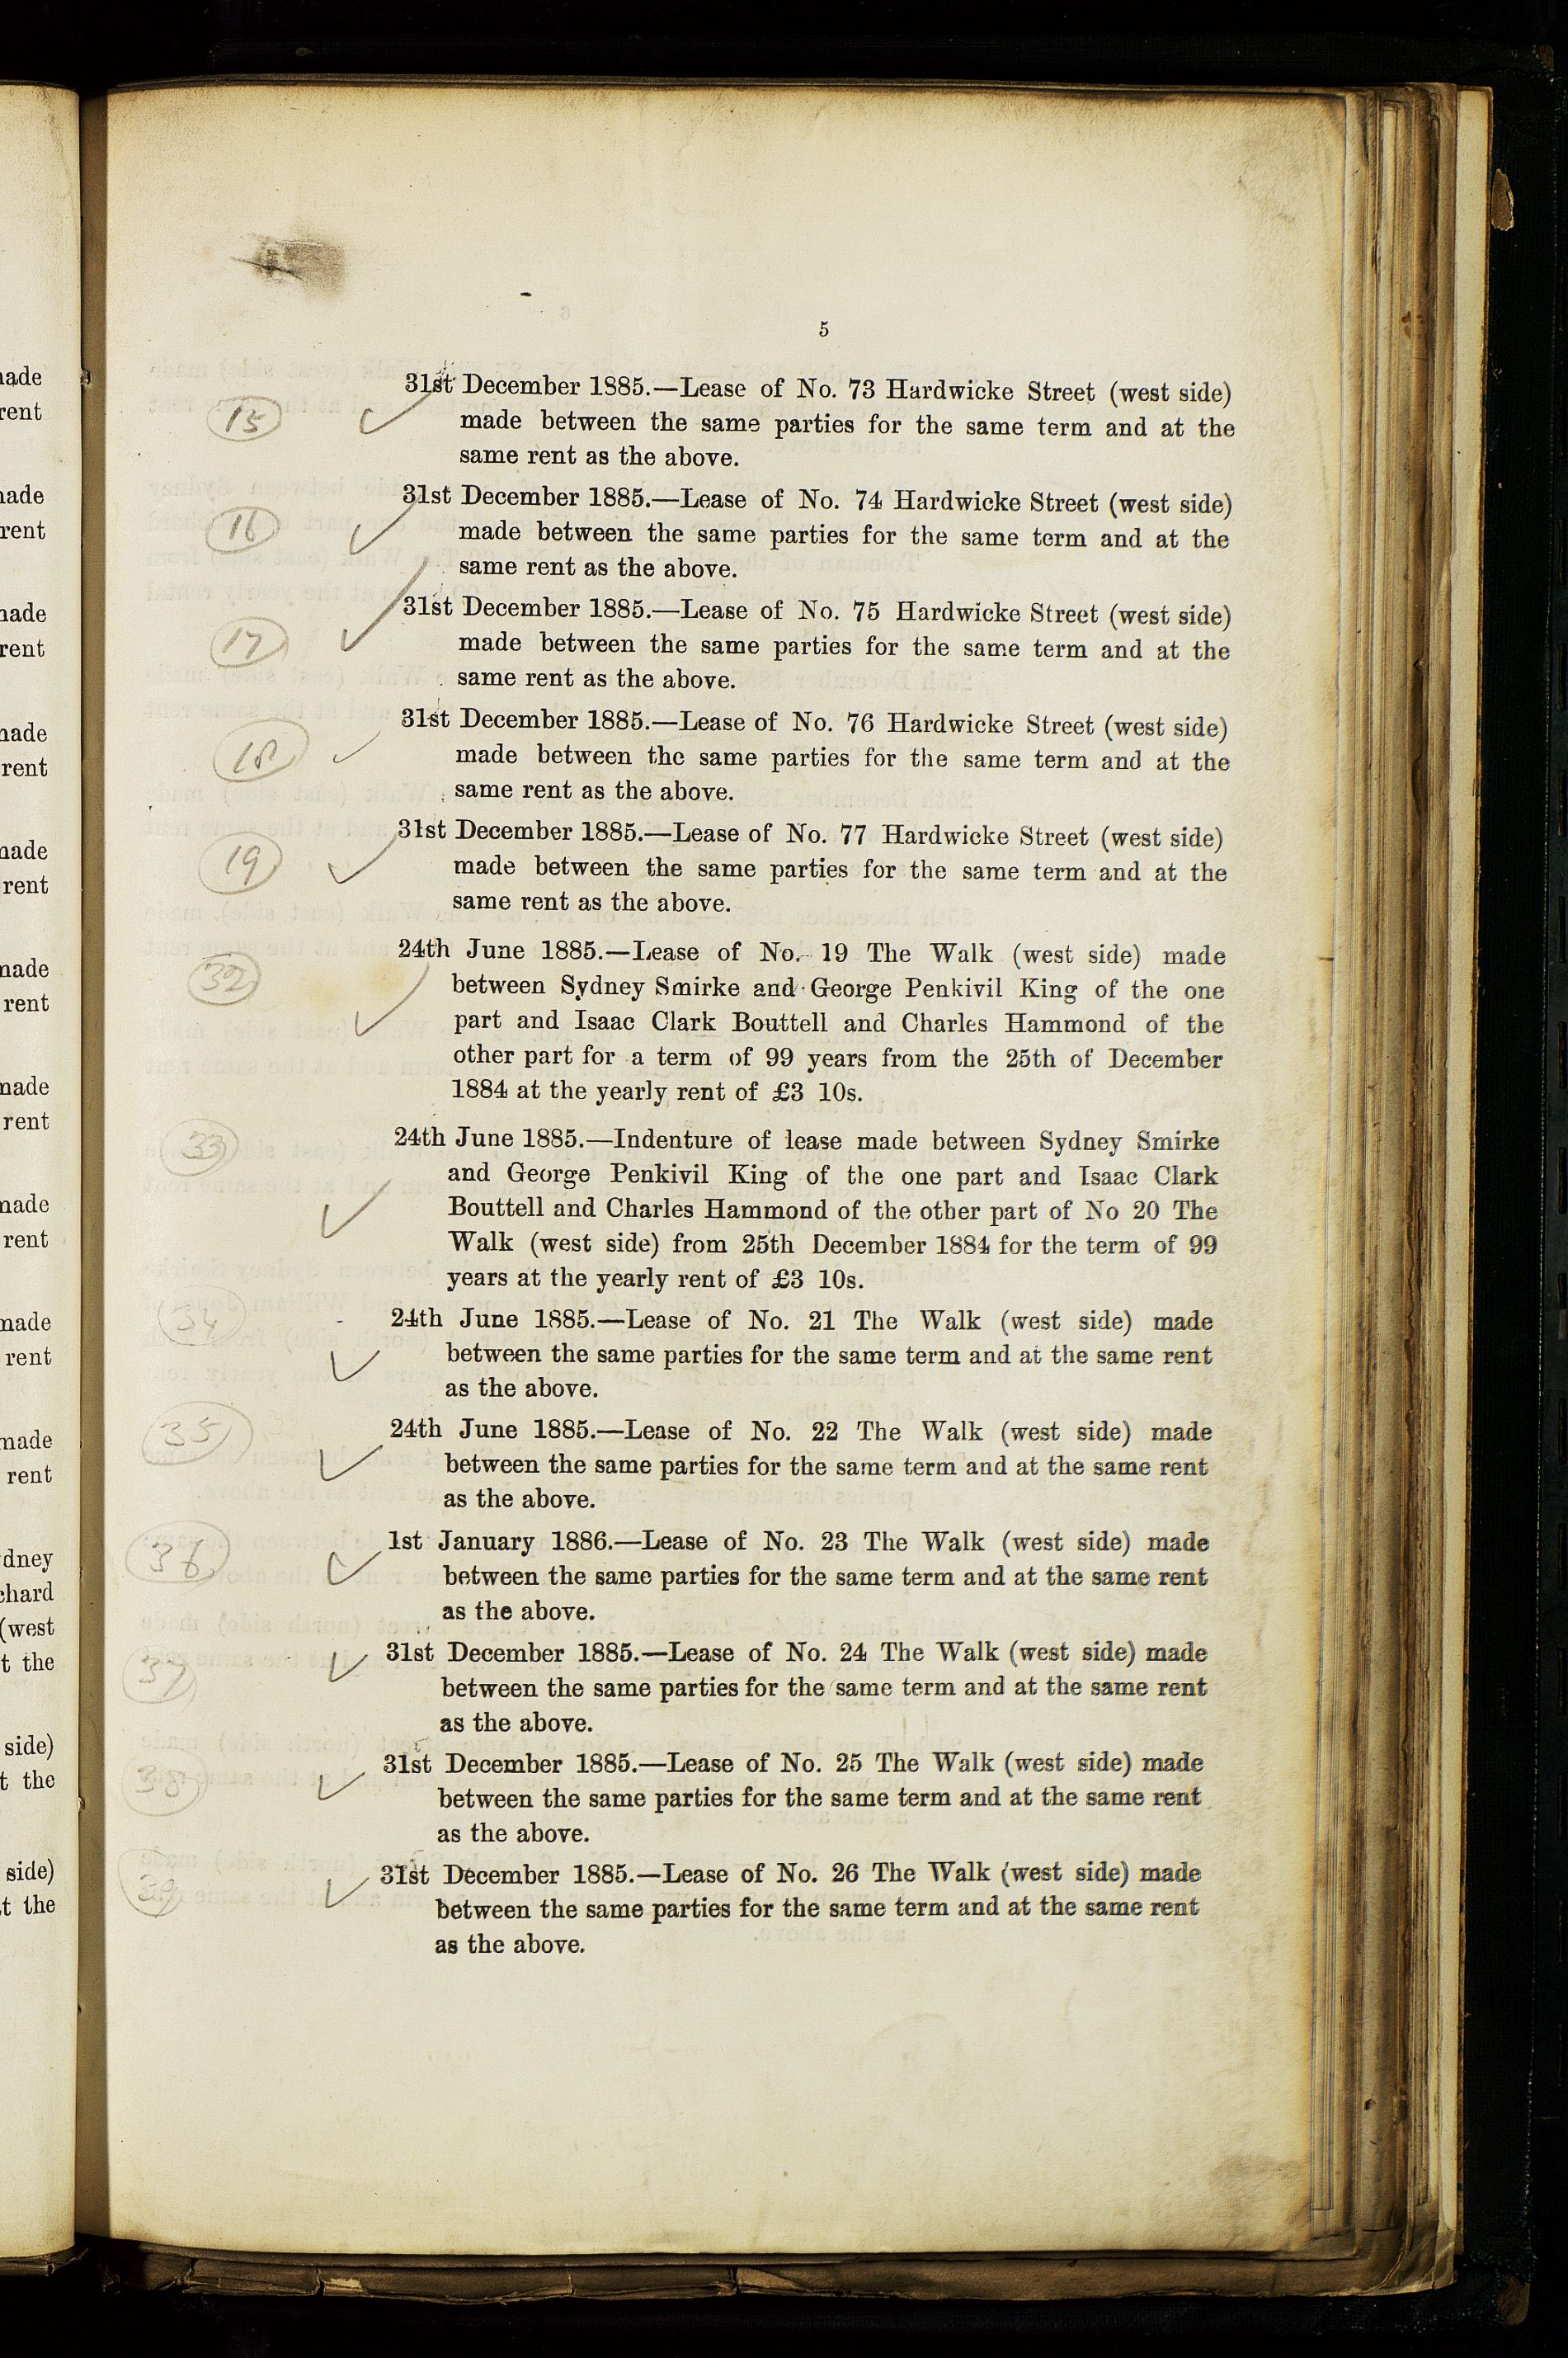 5
15
31st December 1885.—Lease of No. 73 Hardwicke Street (west side)
made between the same parties for the same term and at the
same rent as the above.
16
31st December 1885.—Lease of No. 74 Hardwicke Street (west side)
made between the same parties for the same term and at the
same rent as the above.
17
31st December 1885.—Lease of No. 75 Hardwicke Street (west side)
made between the same parties for the same term and at the
same rent as the above.
18
31st December 1885.—Lease of No. 76 Hardwicke Street (west side)
made between the same parties for the same term and at the
same rent as the above.
19
31st December 1885.—Lease of No. 77 Hardwicke Street (west side)
made between the same parties for the same term and at the
same rent as the above.
32
24th June 1885.—Lease of No. 19 The Walk (west side) made
between Sydney Smirke and George Penkivil King of the one
part and Isaac Clark Bouttell and Charles Hammond of the
other part for a term of 99 years from the 25th of December
1884 at the yearly rent of £3 10s.
33
24th June 1885.—Indenture of lease made between Sydney Smirke
and George Penkivil King of the one part and Isaac Clark
Bouttell and Charles Hammond of the other part of No 20 The
Walk (west side) from 25th December 1884 for the term of 99
years at the yearly rent of £3 10s.
34
24th June 1885.—Lease of No. 21 The Walk (west side) made
between the same parties for the same term and at the same rent
as the above.
35
24th June 1885.—Lease of No. 22 The Walk (west side) made
between the same parties for the same term and at the same rent
as the above.
36
1st January 1886.—Lease of No. 23 The Walk (west side) made
between the same parties for the same term and at the same rent
as the above.
37
31st December 1885.—Lease of No. 24 The Walk (west side) made
between the same parties for the same term and at the same rent
as the above.
38
31st December 1885.—Lease of No. 25 The Walk (west side) made
between the same parties for the same term and at the same rent
as the above.
39
31st December 1885.—Lease of No. 26 The Walk (west side) made
between the same parties for the same term and at the same rent
as the above.